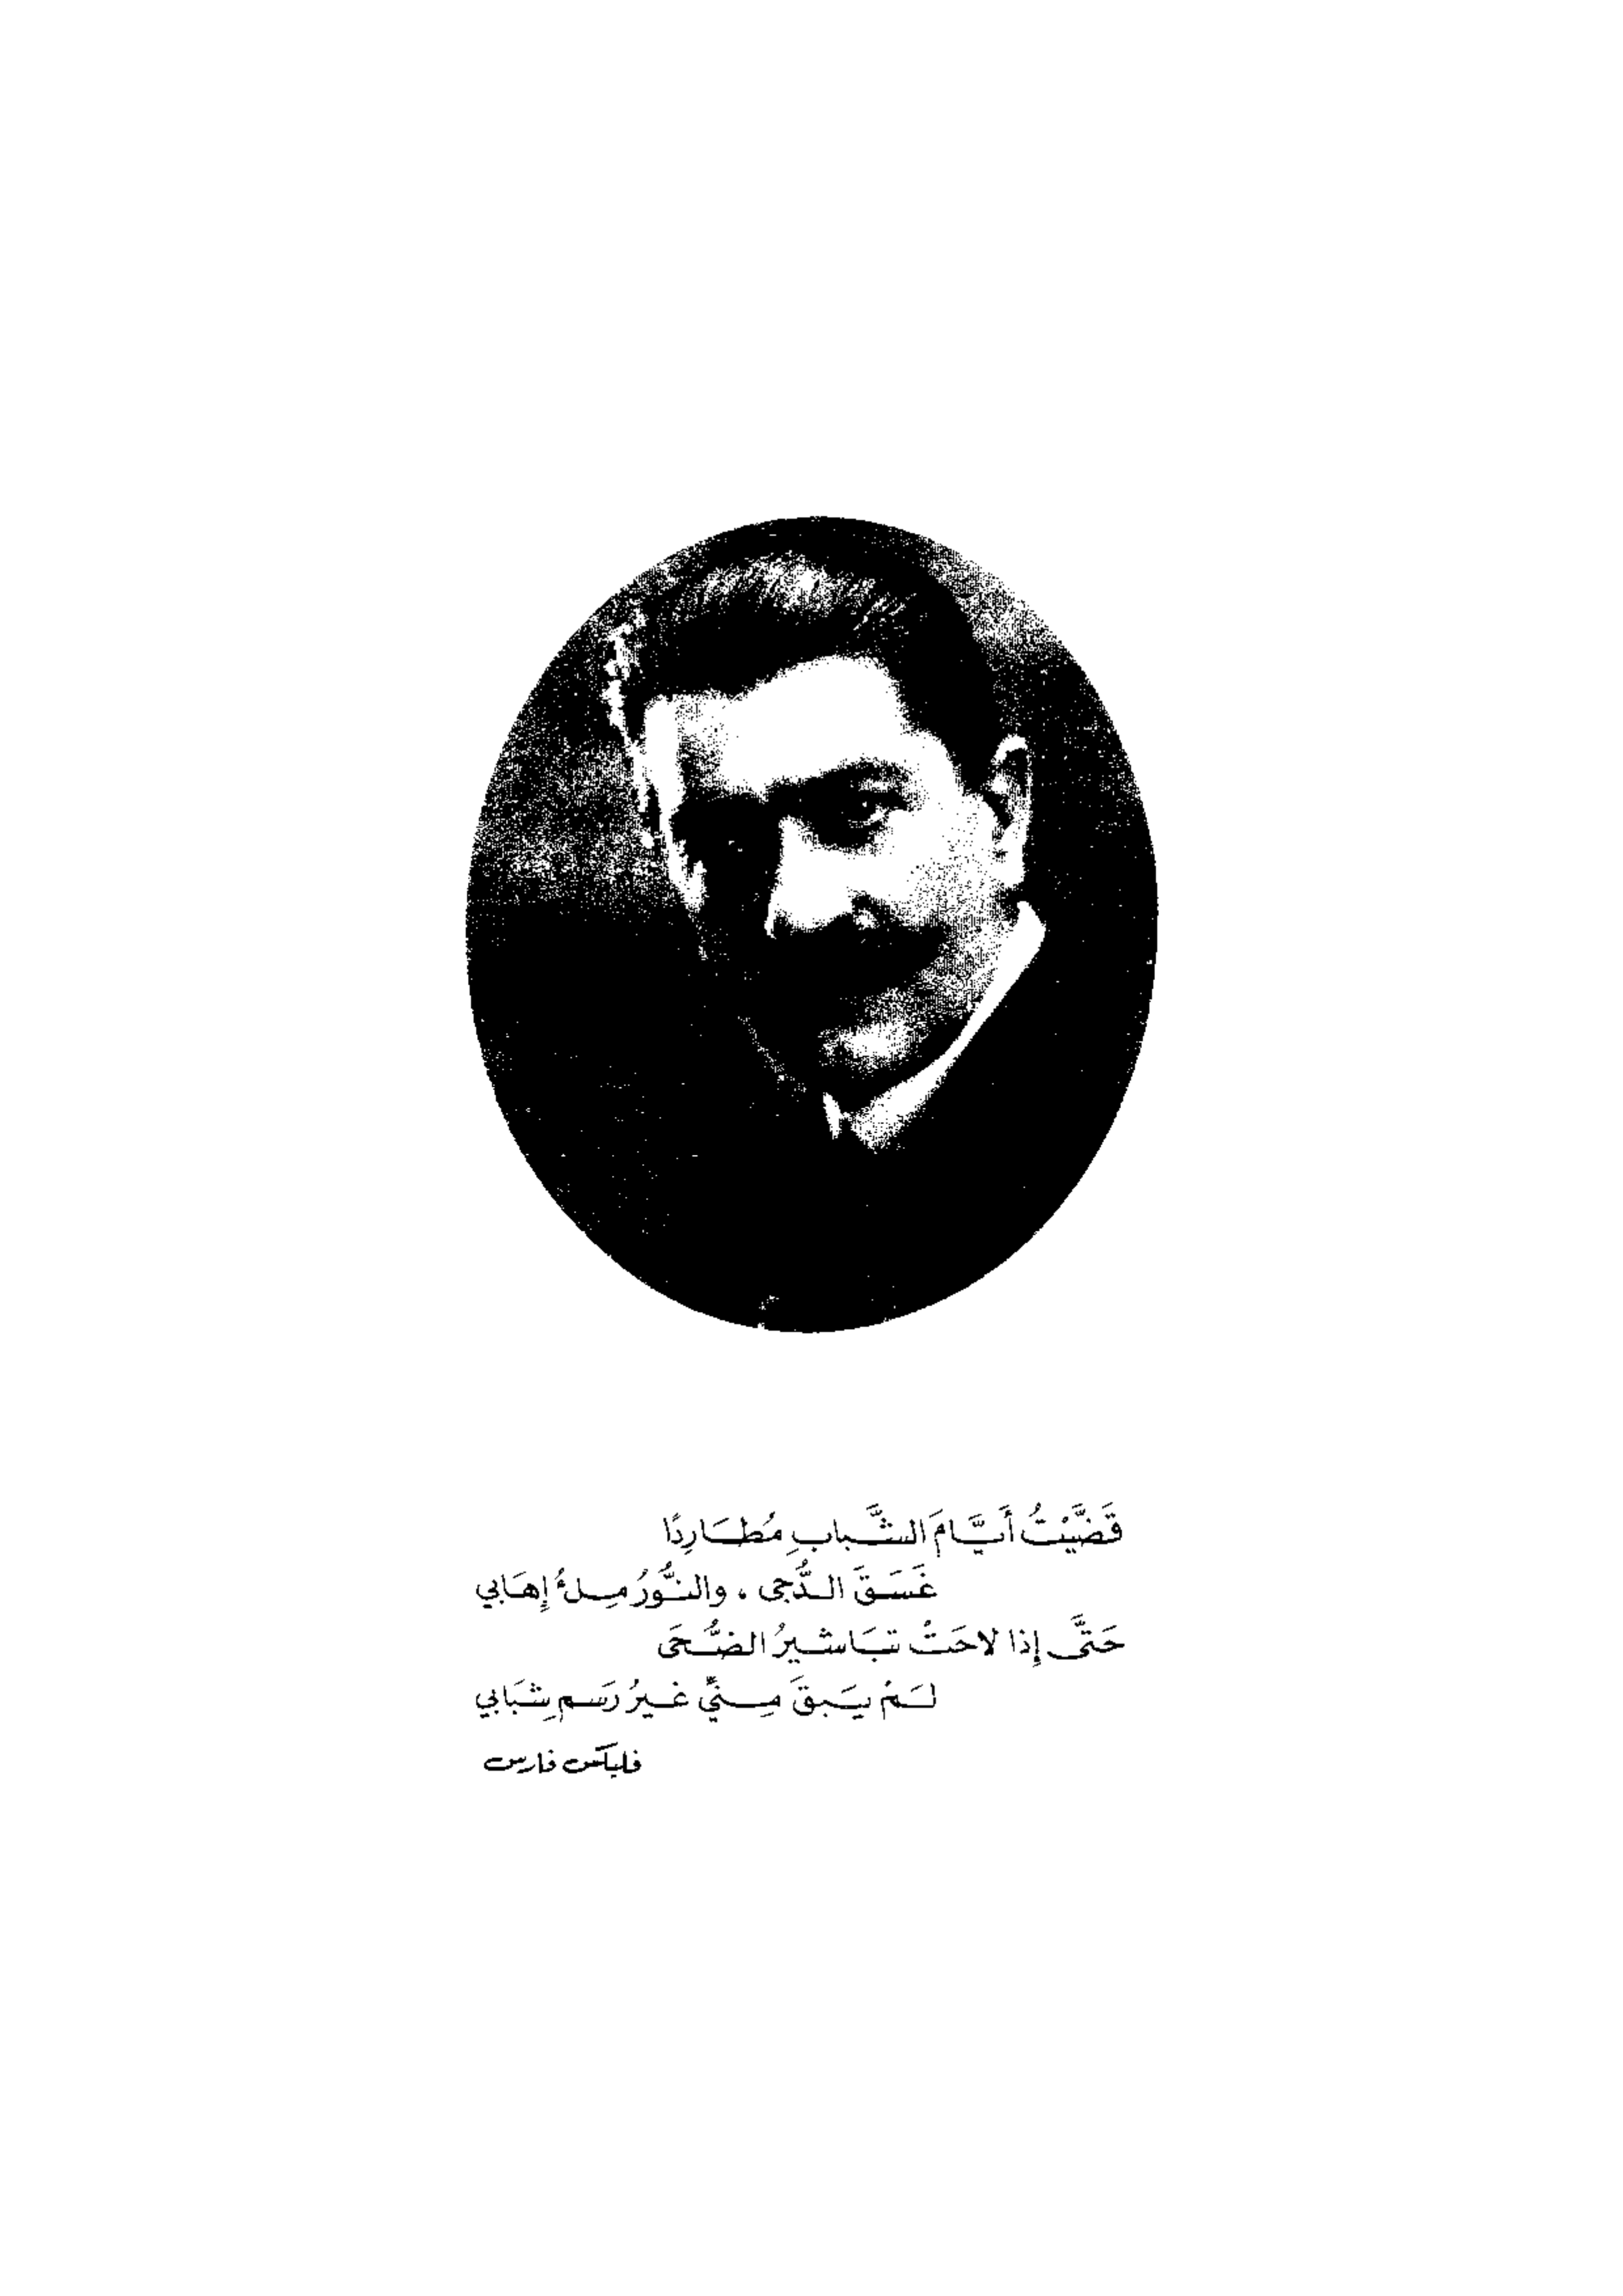 قَضَّيْتُ أَيَّامَ الشَّبابِ مُطَارِدًا
غَسَقَ الدُّجى ، والنُّورُ مِلءُ إِهَابي
حَتَّى إِذا لاحَتْ تبَاشيرُ الضُّحَى
لَمْ يَبقَ مِنيِّ غيرُ رَسمِ شبَابي
فليكس فارس